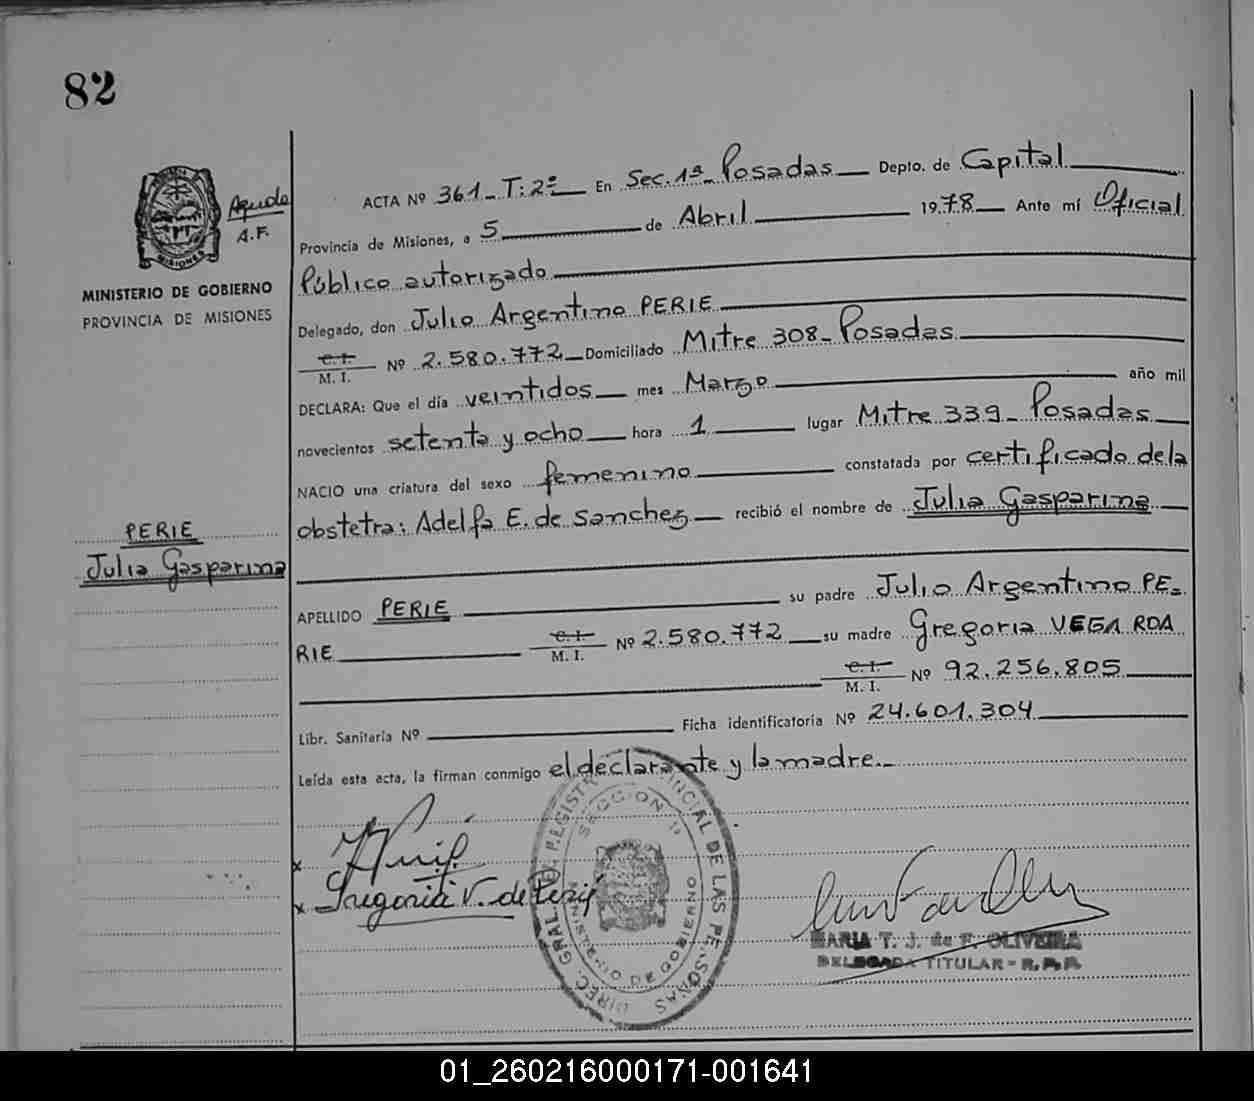 82
Aguda
A.F.
MINISTERIO DE GOBIERNO
PROVINCIA DE MISIONES
PERIE
Julia Gasparina
ACTA Nº 361_ T: 2º En Sec. 1ª_ Posadas Depto. de Capital
Provincia de Misiones, a 5 de Abril 1978 Ante mí Oficial
Público autorizado
Delegado, don Julio Argentino PERIE
C. I.
M. I. Nº 2.580.772 Domiciliado Mitre 308_ Posadas
DECLARA: Que el día veintidos mes Marzo año mil
novecientos setenta y ocho hora 1 lugar Mitre 339_ Posadas
NACIO una criatura del sexo femenino constatada por certificado de la
obstetra: Adelfa E. de Sanchez recibió el nombre de Julia Gasparina
APELLIDO PERIE su padre Julio Argentino PE=
RIE C. I. M. I. Nº 2.580.772 su madre Gregoria VEGA RDA
C. I. M. I. Nº 92.256.805
Libr. Sanitaria Nº Ficha identificatoria Nº 24.601.304
Leída esta acta, la firman conmigo el declarante y la madre._
x
x Gregoria V. de Perié
DIREC. GRAL DEL REGISTRO PROVINCIAL DE LAS PERSONAS
SECCION 1ª
MINISTERIO DE GOBIERNO
MARIA T. J. de F. OLIVEIRA
DELEGADA TITULAR - R. P. P.
01_260216000171-001641